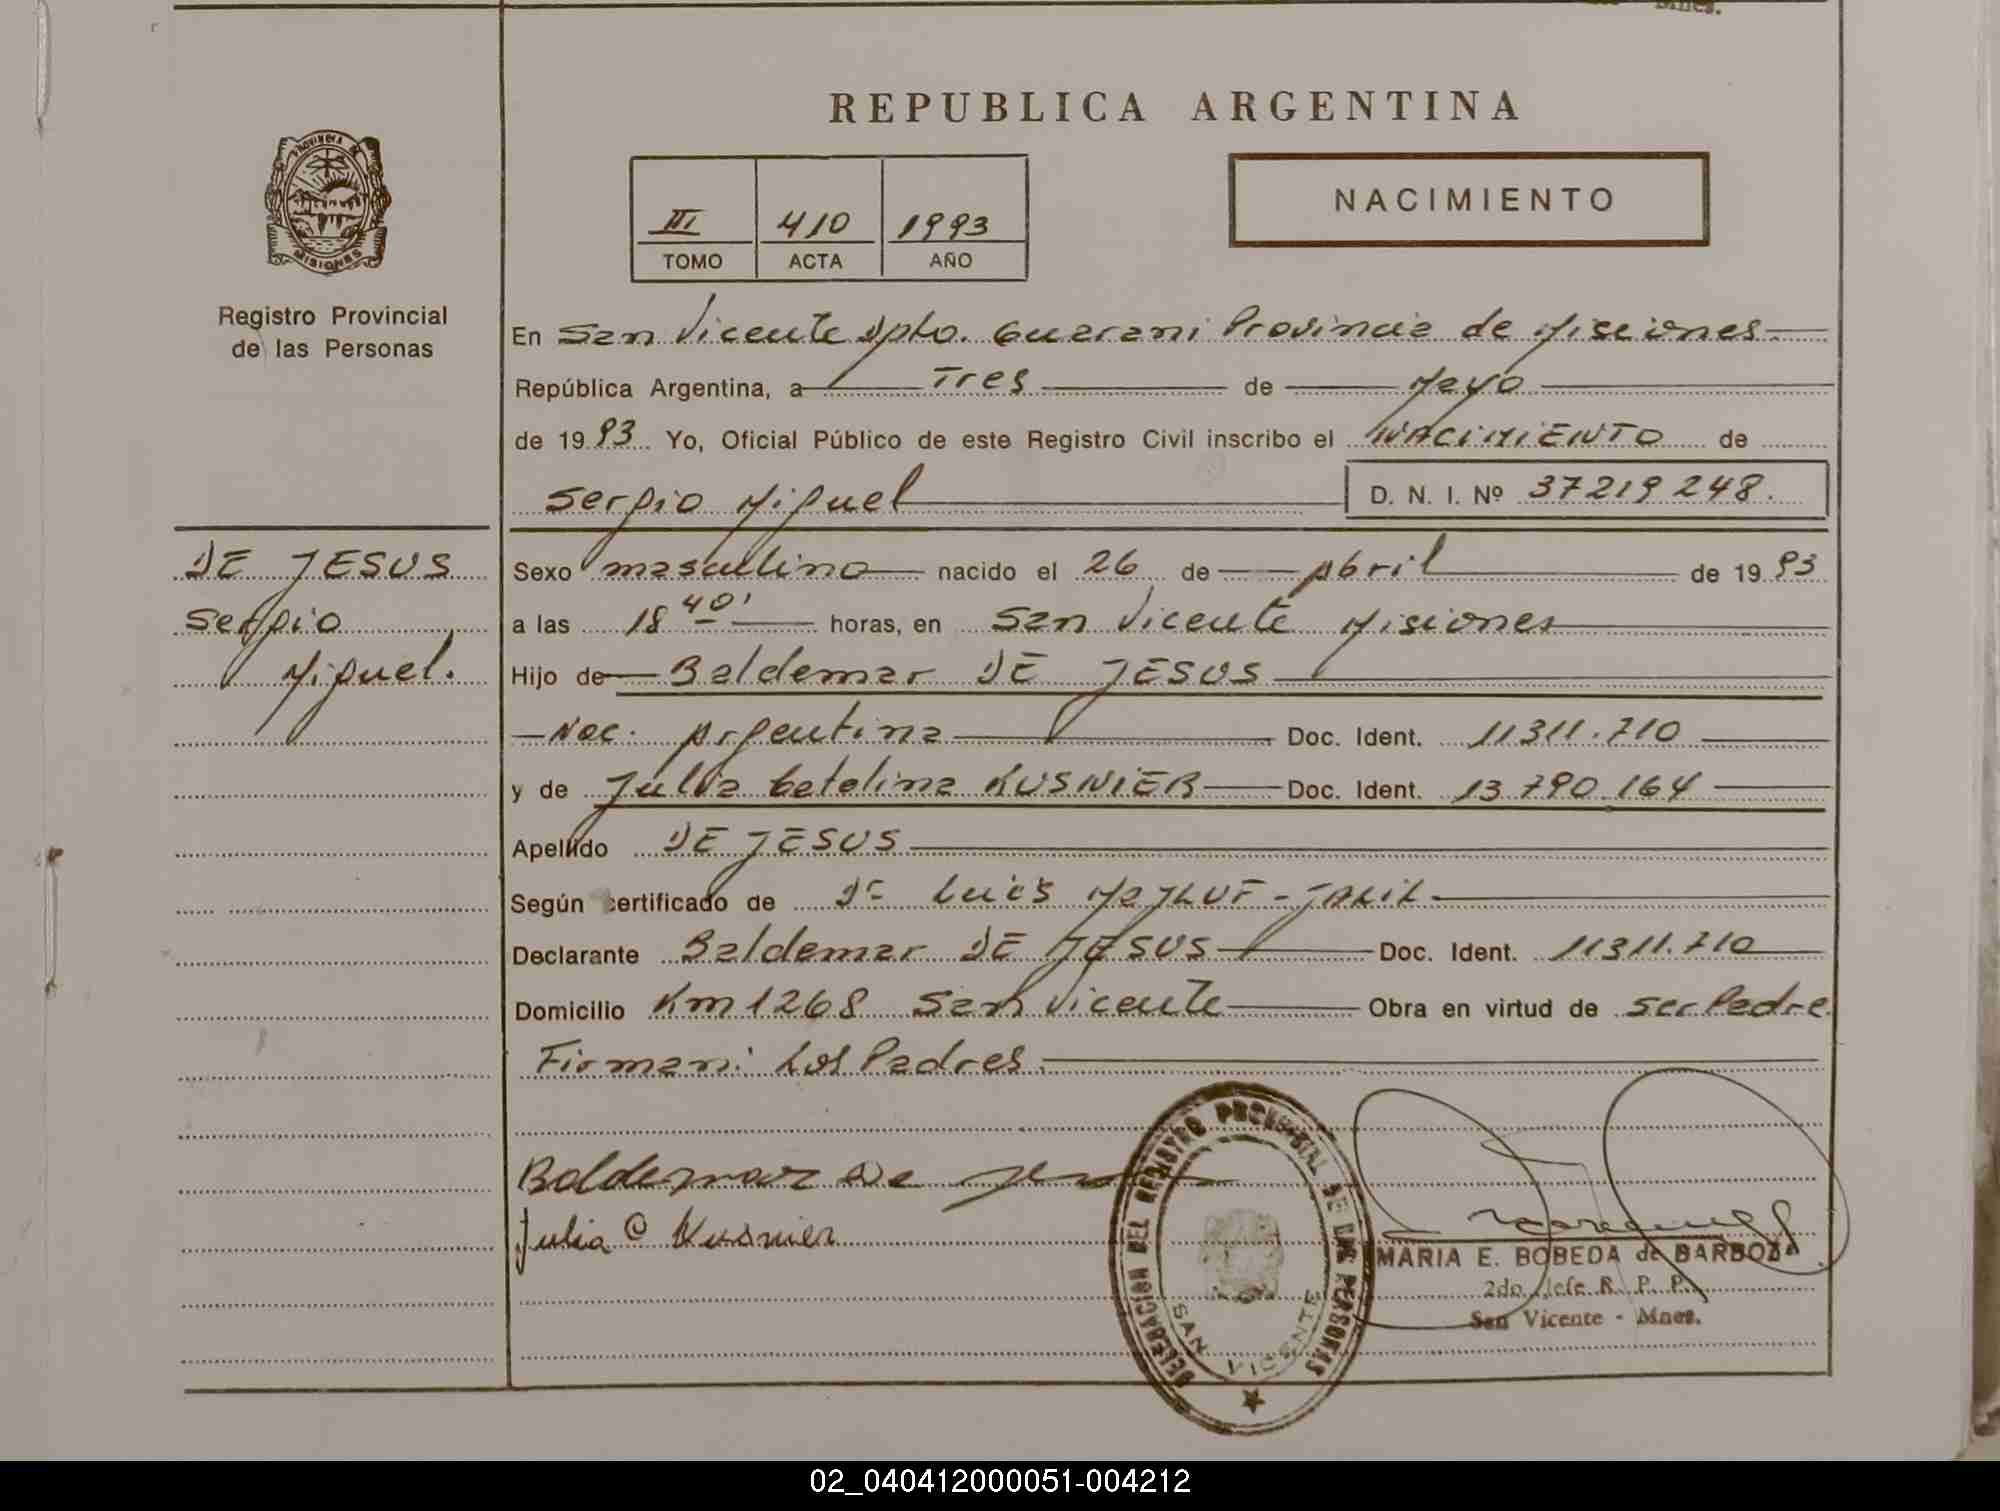 Mnes.
REPUBLICA ARGENTINA
PROVINCIA DE
MISIONES
Registro Provincial
de las Personas
III 410 1993
TOMO ACTA AÑO
NACIMIENTO
En San Vicente Dpto. Guarani Provincia de Misiones.
República Argentina, a Tres de Mayo
de 1993 Yo, Oficial Público de este Registro Civil inscribo el NACIMIENTO de
Sergio Miguel D. N. I. Nº 37219248.
DE JESUS
Sergio
Miguel.
Sexo masculino nacido el 26 de Abril de 1993
a las 18 40' horas, en San Vicente Misiones
Hijo de Baldemar DE JESUS
Nac. Argentina Doc. Ident. 11311.710
y de Julia Catalina KUSNIER Doc. Ident. 13.790.164
Apellido DE JESUS
Según certificado de Dr Luis
Declarante Baldemar DE JESUS Doc. Ident. 11311.710
Domicilio Km 1268 San Vicente Obra en virtud de ser Padre
Firman: Los Padres.
Baldemar De
Julia C Kusnier
DELEGACION DEL REGISTRO PROVINCIAL DE LAS PERSONAS
SAN VICENTE
MARIA E. BOBEDA de BARBOZA
2do. Jefe R. P. P.
San Vicente - Mnes.
02_040412000051-004212